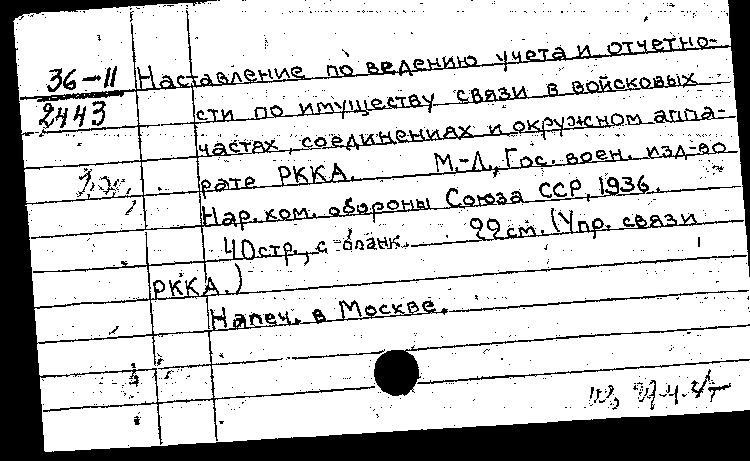 36-11 Наставление по ведению учета и отчетно-
2443 сти по имуществу связи в войсковых
частях, соединениях и окружном аппа-
рате РККА. М.-Л., Гос. воен. изд-во
Нар. ком. обороны Союза ССР, 1936.
40 стр., с бланк. 22 см. (Упр. связи
РККА.)
Напеч. в Москве.